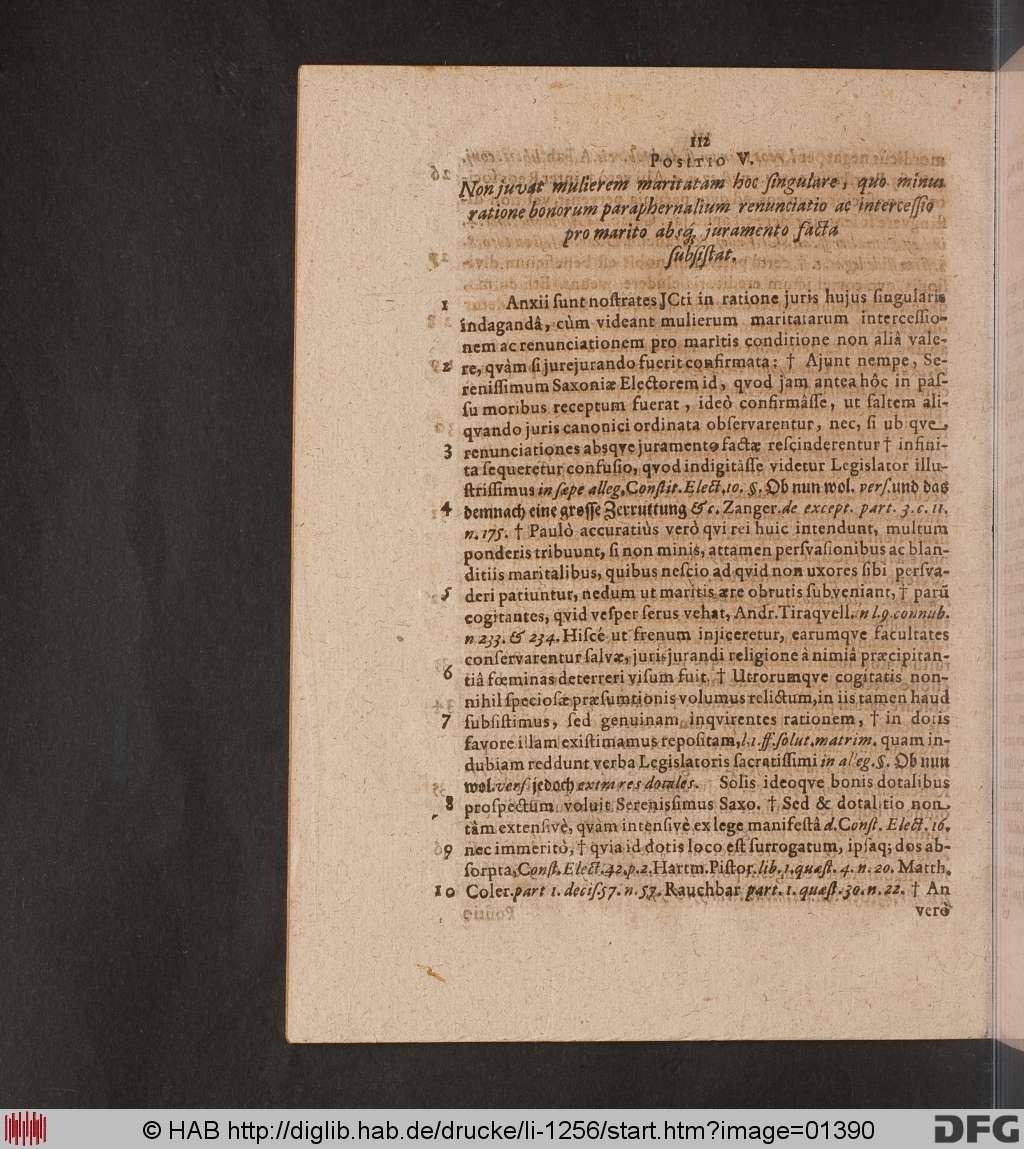 112
POSITIO V.
Non juvat mulierem maritatam hoc singulare, quo minus
ratione bonorum paraphernalium renunciatio ac intercessio
pro marito absq; juramento facta
subsistat.
1 Anxii sunt nostrates JCti in ratione juris hujus singularis
indagandâ, cùm videant mulierum maritatarum intercessio-
nem ac renunciationem pro maritis conditione non aliâ vale-
2 re, qvàm si jurejurando fuerit confirmata: † Ajunt nempe, Se-
renissimum Saxoniæ Electorem id, qvod jam antea hôc in pas-
su moribus receptum fuerat, ideò confirmâsse, ut saltem ali-
qvando juris canonici ordinata observarentur, nec, si ubqve
3 renunciationes absqve juramento factæ rescinderentur † infini-
ta seqveretur confusio, qvod indigitâsse videtur Legislator illu-
strissimus in sæpe alleg. Constit. Elect. 10. §. Ob nun wol. vers. und das
4 demnach eine grosse Zerruttung &c. Zanger. de except. part. 3. c. 11.
n. 175. † Paulò accuratiùs verò qvi rei huic intendunt, multum
ponderis tribuunt, si non minis, attamen persvasionibus ac blan-
ditiis maritalibus, quibus nescio ad qvid non uxores sibi persva-
5 deri patiuntur, nedum ut maritis ære obrutis subveniant, † parũ
cogitantes, qvid vesper serus vehat, Andr. Tiraqvell. in l. 9. connub.
n 233. & 234. Hiscé ut frenum injiceretur, earumqve facultates
conservarentur salvæ, jurisjurandi religione à nimiâ præcipitan-
6 tiâ fœminas deterreri visum fuit. † Utrorumqve cogitatis non-
nihil speciosæ præsumtionis volumus relictum, in iis tamen haud
7 subsistimus, sed genuinam inqvirentes rationem, † in dotis
favore illam existimamus repositam, l. 1. ff. solut. matrim. quam in-
dubiam reddunt verba Legislatoris sacratissimi in alleg. §. Ob nun
wol. vers. jedoch extra res dotales. Solis ideoqve bonis dotalibus
8 prospectum voluit Serenissimus Saxo. † Sed & dotalitio non
tàm extensivè, qvàm intensivè ex lege manifestâ d. Const. Elect. 16.
9 nec immeritò, † qvia id dotis loco est surrogatum, ipsaq; dos ab-
sorpta, Const. Elect. 42. p. 2. Hartm. Pistor. lib. 1. quæst. 4. n. 20. Matth.
10 Coler. part 1. decis. 57. n. 57. Rauchbar part. 1. quæst. 30. n. 22. † An
verò
© HAB http://diglib.hab.de/drucke/li-1256/start.htm?image=01390
DFG